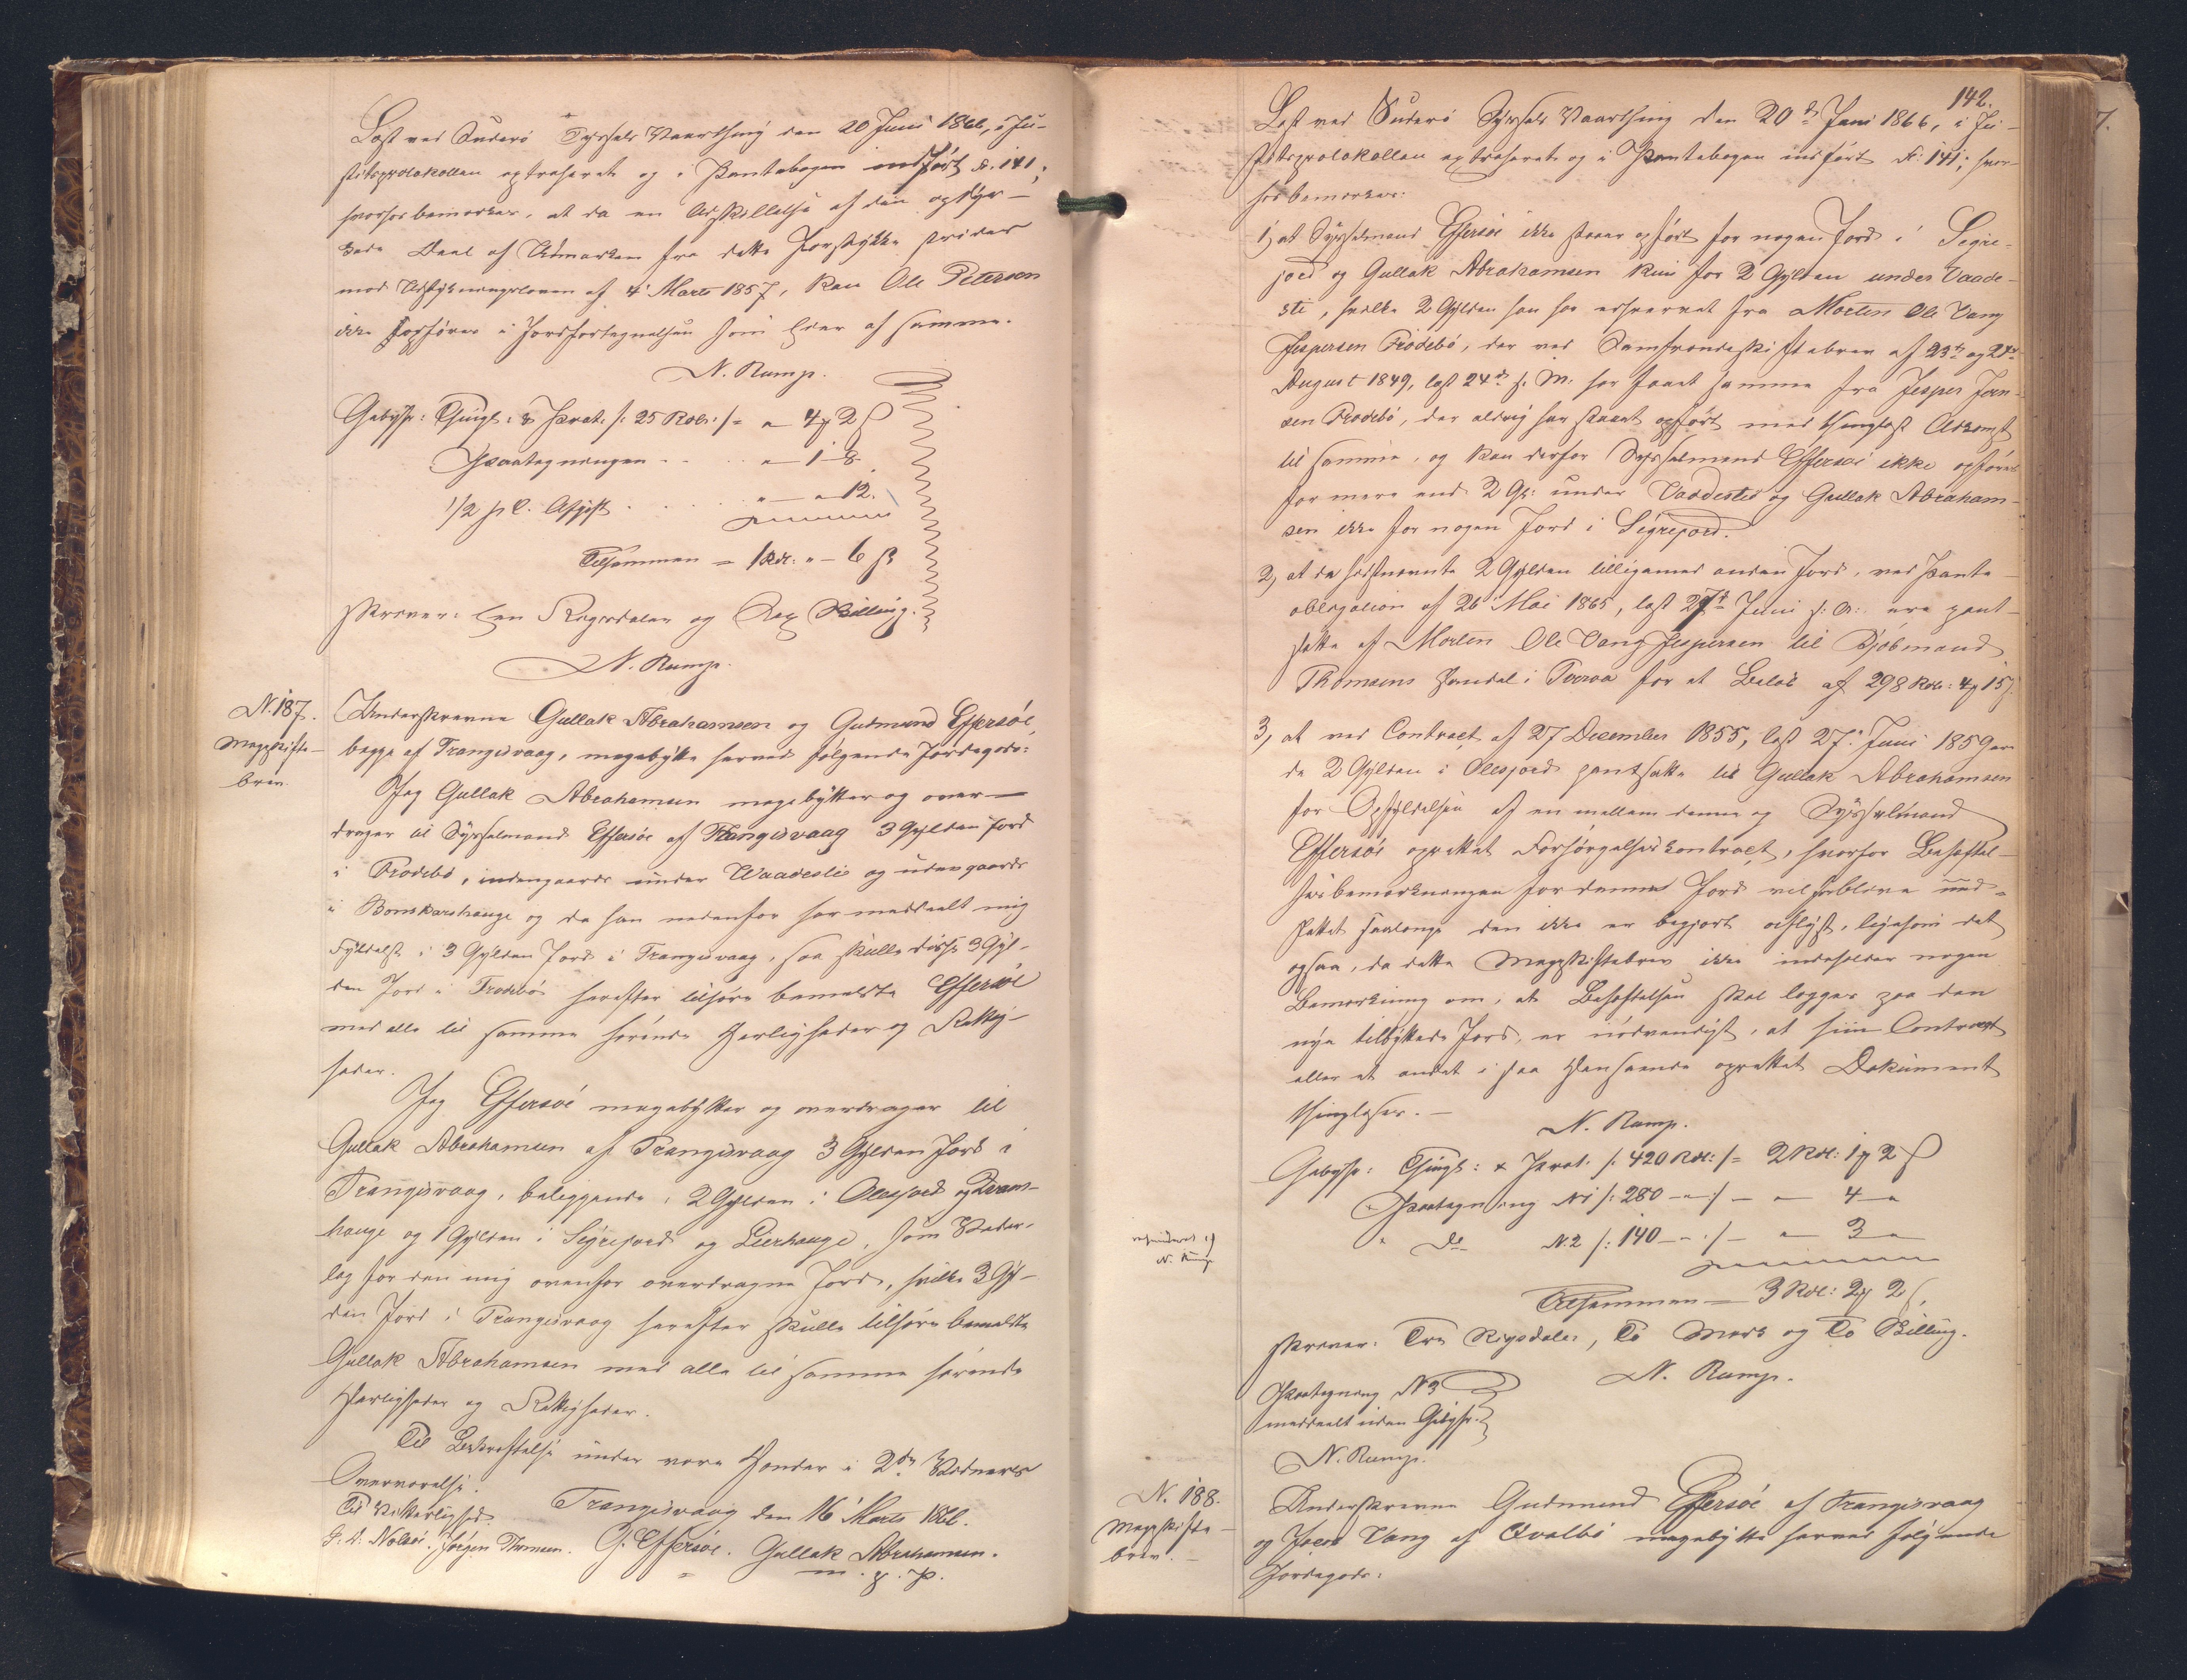 Læst ved Suderø Syssels Vaarthing den 20 Juni 1866, i Ju-
stitsprotokollen extraheret og i Pantebogen indført Fol. 141;
hvorhos bemærkes, at da en Adskillelse af den
Deel af Udmarken fra dette Jordstykke strider
mod Udstykningsloven af 4' Marts 1857, kan Ole Petersen
ikke opføres i Jordfortegnelsen som Eier af samme.
N. Rump.
Gebyhr: Thingl: & Prot. /: 25 Rdlr: /= " 4 2 ß
Paategningen . . . " - 1 - 8
1/2 p C. Afgift . . . . " - " 12.
Tilsammen = 1 Rdl: " - 6 ß
skriver: Een Rigsdaler og Sex Skilling.
N. Rump.
N. 187.
Mageskifte-
brev.
Underskrevne Gullak Abrahamsen og Gudmund Effersöe,
begge af Trangisvaag, magebytte herved følgende Jordegods:
Jeg Gullak Abrahamsen magebytter og over-
drager til Sysselmand Effersöe af Trangisvaag 3 Gylden Jord
i Frodebö, indengaards under Waadestie og udengaards
i Bonskarshauge og da han nedenfor har meddeelt mig
Fyldest i 3 Gylden Jord i Trangisvaag, saa skulle disse 3 Gyl-
den Jord i Frodebö herefter tilhøre bemeldte Effersöe
med alle til samme hørende Herligheder og Rettig-
heder.
Jeg Effersöe magebytter og overdrager til
Gullak Abrahamsen af Trangisvaag 3 Gylden Jord i
Trangisvaag, beliggende: 2 Gylden i Olesjord og
hauge og 1 Gylden i Segrejord og Lierhauge, som Veder-
lag for den mig ovenfor overdragne Jord, hvilke 3 Gyl-
den Jord i Trangisvaag herefter skulle tilhøre bemeldte
Gullak Abrahamsen med alle til samme hørende
Herligheder og Rettigheder.
Til Bekræftelse under vore Hænder i 2de Vidners
Overværelse.
Trangisvaag den 16' Marts 1866.
Til Vitterlighed.
Nolsöe. Jörgen Thomsen. G. Effersöe. Gullak Abrahamsen.
m. p. p.
142.
Læst ved Suderø Syssels Vaarthing den 20de Juni 1866, i Ju-
stitsprotokollen extraheret og i Pantebogen indført Fol: 141; hvor-
hos bemærkes:
1, at Sysselmand Effersöe ikke staaer opført for nogen Jord i Segre-
jord og Gullak Abrahamsen kun for 2 Gylden under Vaade-
stie, hvilke 2 Gylden han har erhvervet fra Morten Ole Vang
Jespersen Frodebö, der ved Samfrændeskiftebrev af 23de og 24de
August 1849, læst 24de s. M. har faaet samme fra Jesper Joen-
sen Frodebö, der aldrig har staaet opført med thinglæst Adkomst
til samme, og kan derfor Sysselmand Effersöe ikke opføres
for mere end 2 Gl: under Vaadestie og Gullak Abraham-
sen ikke for nogen Jord i Segrejord.
2, at da sidstnævnte 2 Gylden tilligemed anden Jord, ved Pante-
obligation af 26' Mai 1865, læst 27de Juni s: A: ere pant-
satte af Morten Ole Vang Jespersen til Kjøbmand
Thomsens Handel i Tveraa for et Beløb af 298 Rdlr: 4 15 ß
3, at ved Contract af 27 December 1855, læst 27' Juni 1859 ere
de 2 Gylden i Olesjord pantsatte til Gullak Abrahamsen
for Opfyldelsen af en mellem denne og Sysselmand
Effersöe oprettet Forsørgelseskontract, hvorfor Behæftel-
sesbemærkningen for denne Jord vil forblive uud-
slettet saalænge den ikke er begjært aflyst, ligesom det
ogsaa, da dette Mageskiftebrev ikke indeholder nogen
Bemærkning om, at Behæftelsen skal lægges paa den
nye tilbyttede Jord, er nødvendigt, at hiin Contract
eller et andet i saa Henseende oprettet Dokument
thinglæses. -
N. Rump.
Gebyhr: Thingl: & Prot. /: 420 Rdl: /= 2 Rdl: 1 2 ß
Paategning N 1 /: 280 - " - / - " 4 - "
" do N. 2 /: 140 - " - / - " 3 - "
Tilsammen = 3 Rdl: 2 2 ß,
skriver: Tre Rigsdaler, To Mark og To Skilling.
N. Rump.
N. Rump
Paategning N 3
meddeelt uden Gebyhr.
N. Rump.
N. 188.
Mageskifte-
brev. -
Underskrevne Gudmund Effersöe af Trangisvaag
og Joen Vang af Qvalbö magebytte herved følgende
Jordegods: